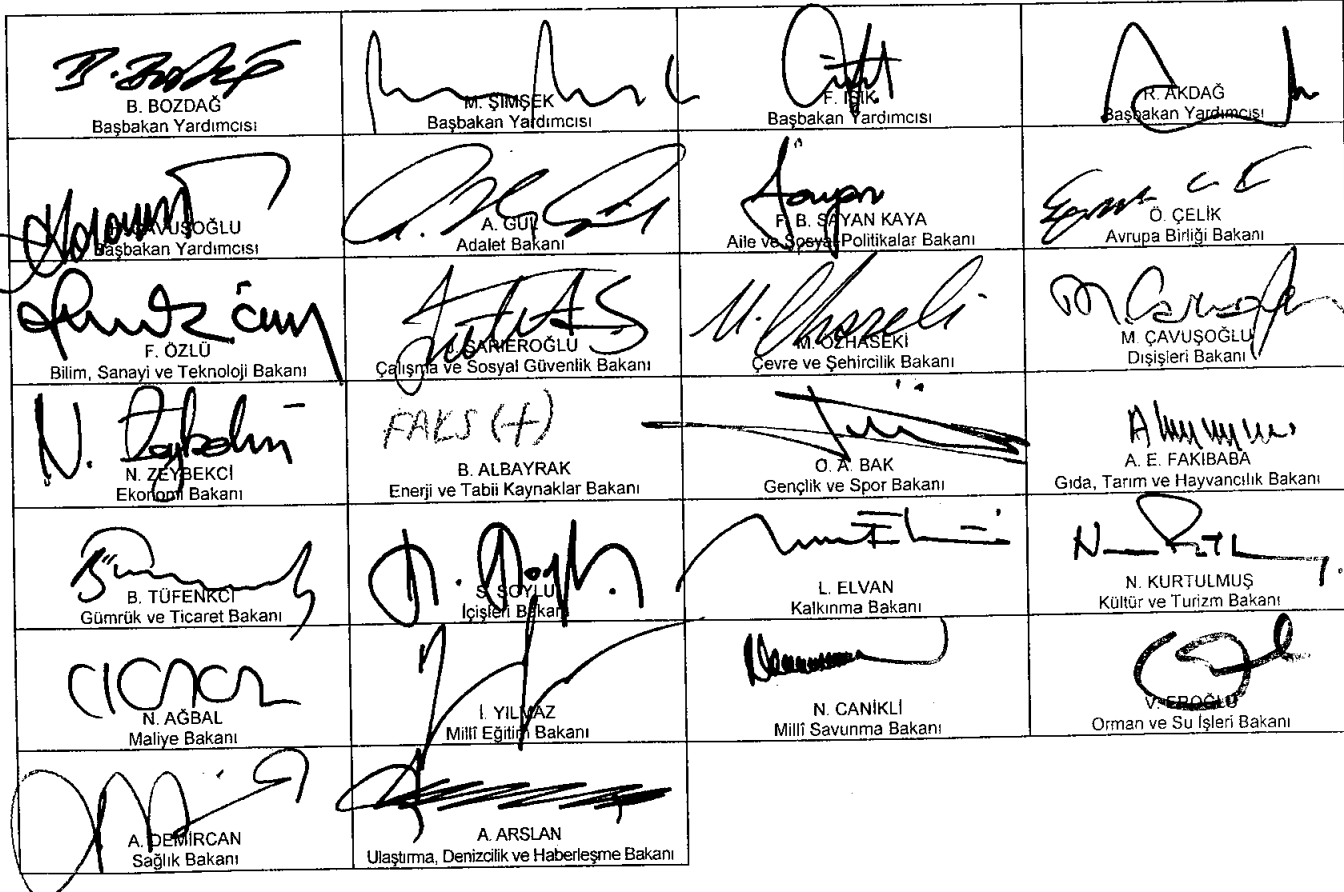 B. BOZDAĞ
Başbakan Yardımcısı
M. ŞİMŞEK
Başbakan Yardımcısı
F. IŞIK
Başbakan Yardımcısı
R. AKDAĞ
Başbakan Yardımcısı
ÇAVUŞOĞLU
Başbakan Yardımcısı
A. GÜL
Adalet Bakanı
F. B. SAYAN KAYA
Aile ve Sosyal Politikalar Bakanı
Ö. ÇELİK
Avrupa Birliği Bakanı
F. ÖZLÜ
Bilim, Sanayi ve Teknoloji Bakanı
J. SARIEROĞLU
Çalışma ve Sosyal Güvenlik Bakanı
M. ÖZHASEKİ
Çevre ve Şehircilik Bakanı
M. ÇAVUŞOĞLU
Dışişleri Bakanı
N. ZEYBEKCİ
Ekonomi Bakanı
FAKS (+)
B. ALBAYRAK
Enerji ve Tabii Kaynaklar Bakanı
O. A. BAK
Gençlik ve Spor Bakanı
A. E. FAKIBABA
Gıda, Tarım ve Hayvancılık Bakanı
B. TÜFENKCİ
Gümrük ve Ticaret Bakanı
S. SOYLU
İçişleri Bakanı
L. ELVAN
Kalkınma Bakanı
N. KURTULMUŞ
Kültür ve Turizm Bakanı
N. AĞBAL
Maliye Bakanı
İ. YILMAZ
Millî Eğitim Bakanı
N. CANİKLİ
Millî Savunma Bakanı
V. EROĞLU
Orman ve Su İşleri Bakanı
A. DEMİRCAN
Sağlık Bakanı
A. ARSLAN
Ulaştırma, Denizcilik ve Haberleşme Bakanı